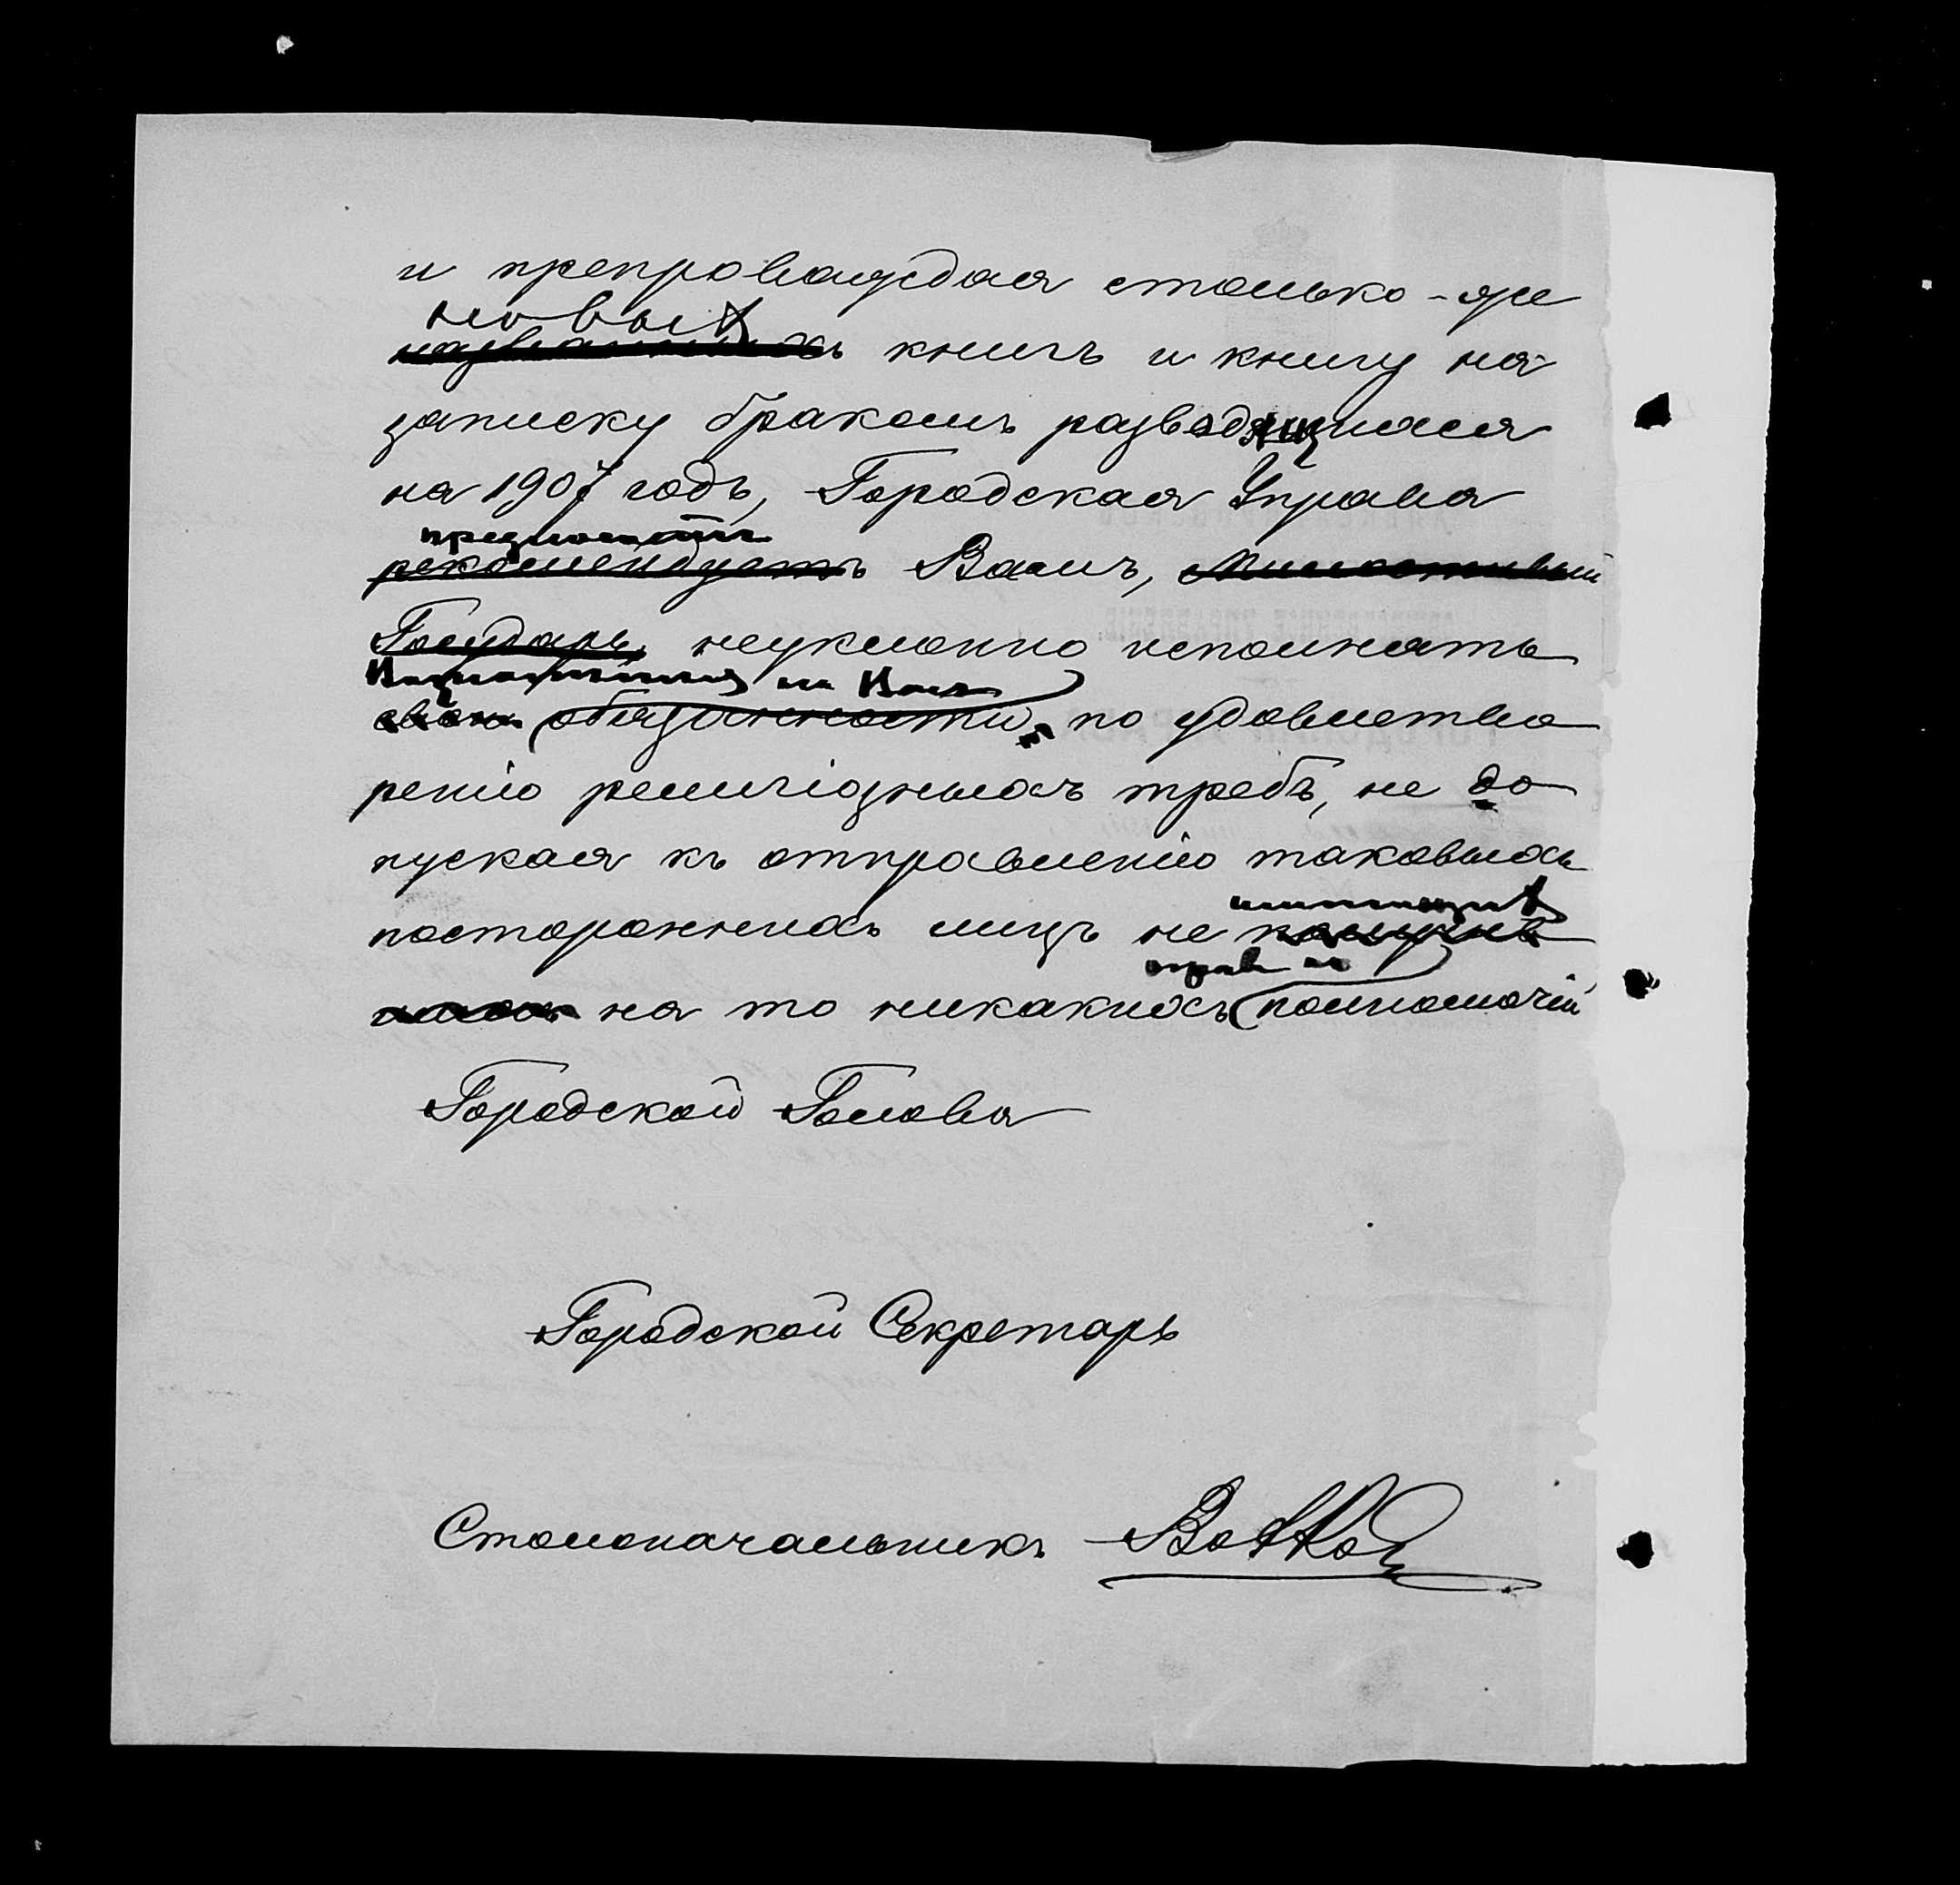 и препровождая столько-же
новыхъ
названныхъ книгъ и книгу на
записку бракомъ разводящихся
на 1907 годъ, Городская Управа
предлагаетъ
рекомендуетъ Вамъ, Милостивый
Государь, неуклонно исполнять
возложенныя на Васъ
свои обязанности по удовлетво
ренію религіозныхъ требъ, не до
пуская къ отправленію таковыхъ
постороннихъ лицъ не
имѣющихъ
на то никакихъ полномочій
Городской Голова
Городской Секретарь
Столоначальникъ